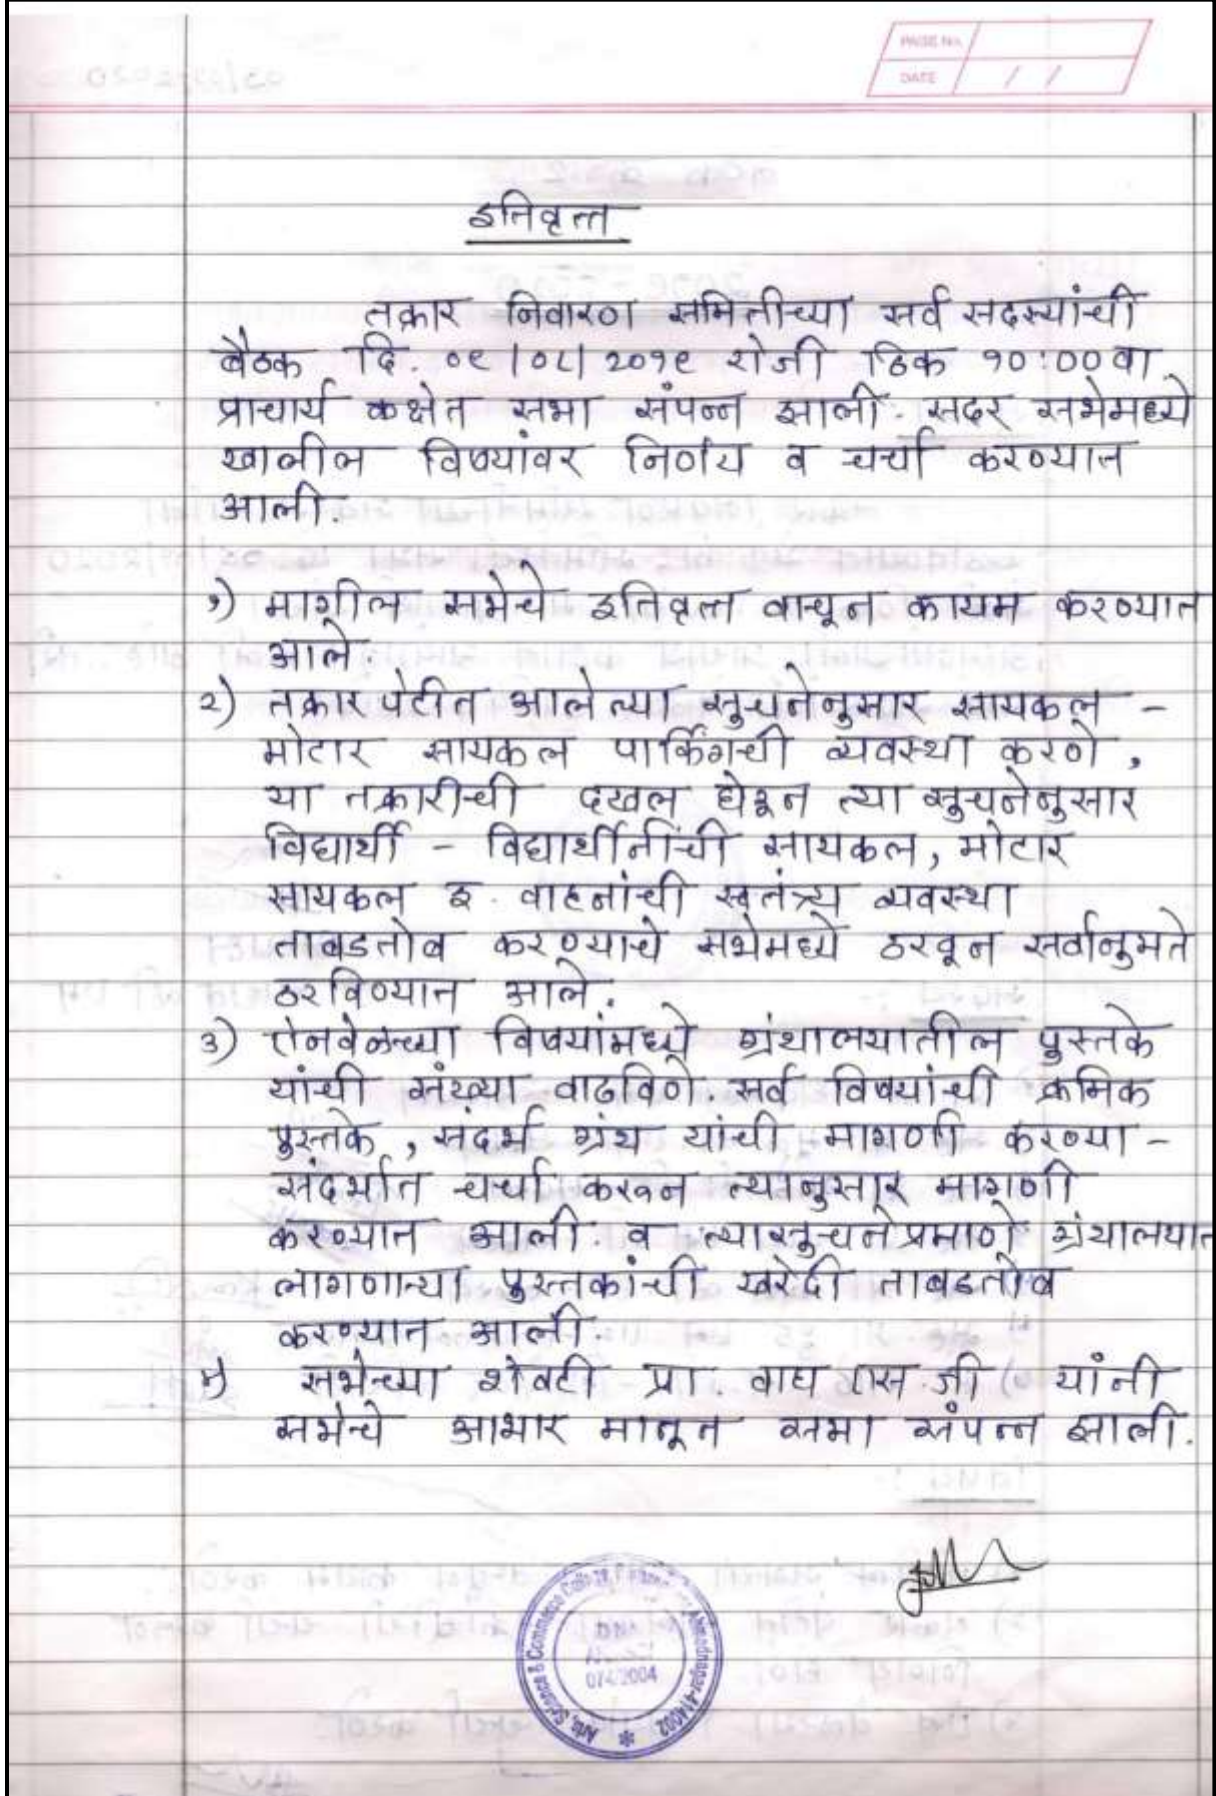 PAGE No.
DATE / /
इतिवृत्त
तक्रार निवारण समितीच्या सर्व सदस्यांची
बैठक दि. ०९/०८/२०१९ रोजी ठिक १०:०० वा
प्राचार्य कक्षेत सभा संपन्न झाली. सदर सभेमध्ये
खालील विषयांवर निर्णय व चर्चा करण्यात
आली.
१) मागील सभेचे इतिवृत्त वाचून कायम करण्यात
आले.
२) तक्रार पेटीत आलेल्या सुचनेनुसार सायकल -
मोटार सायकल पार्किंगची व्यवस्था करणे,
या तक्रारीची दखल घेऊन त्या सुचनेनुसार
विद्यार्थी - विद्यार्थीनींची सायकल, मोटार
सायकल इ. वाहनांची स्वतंत्र्य व्यवस्था
ताबडतोब करण्याचे सभेमध्ये ठरवून सर्वानुमते
ठरविण्यात आले.
३) ऐनवेळच्या विषयांमध्ये ग्रंथालयातील पुस्तके
यांची संख्या वाढविणे. सर्व विषयांची क्रमिक
पुस्तके, संदर्भ ग्रंथ यांची मागणी करण्या -
संदर्भात चर्चा करून त्यानुसार मागणी
करण्यात आली. व त्यासुचनेप्रमाणे ग्रंथालयात
लागणाऱ्या पुस्तकांची खरेदी ताबडतोब
करण्यात आली.
४) सभेच्या शेवटी प्रा. वाघ एस. जी. यांनी
सभेचे आभार मानून सभा संपन्न झाली.
Arts, Science & Commerce College Ahmednagar-414002
07/2004